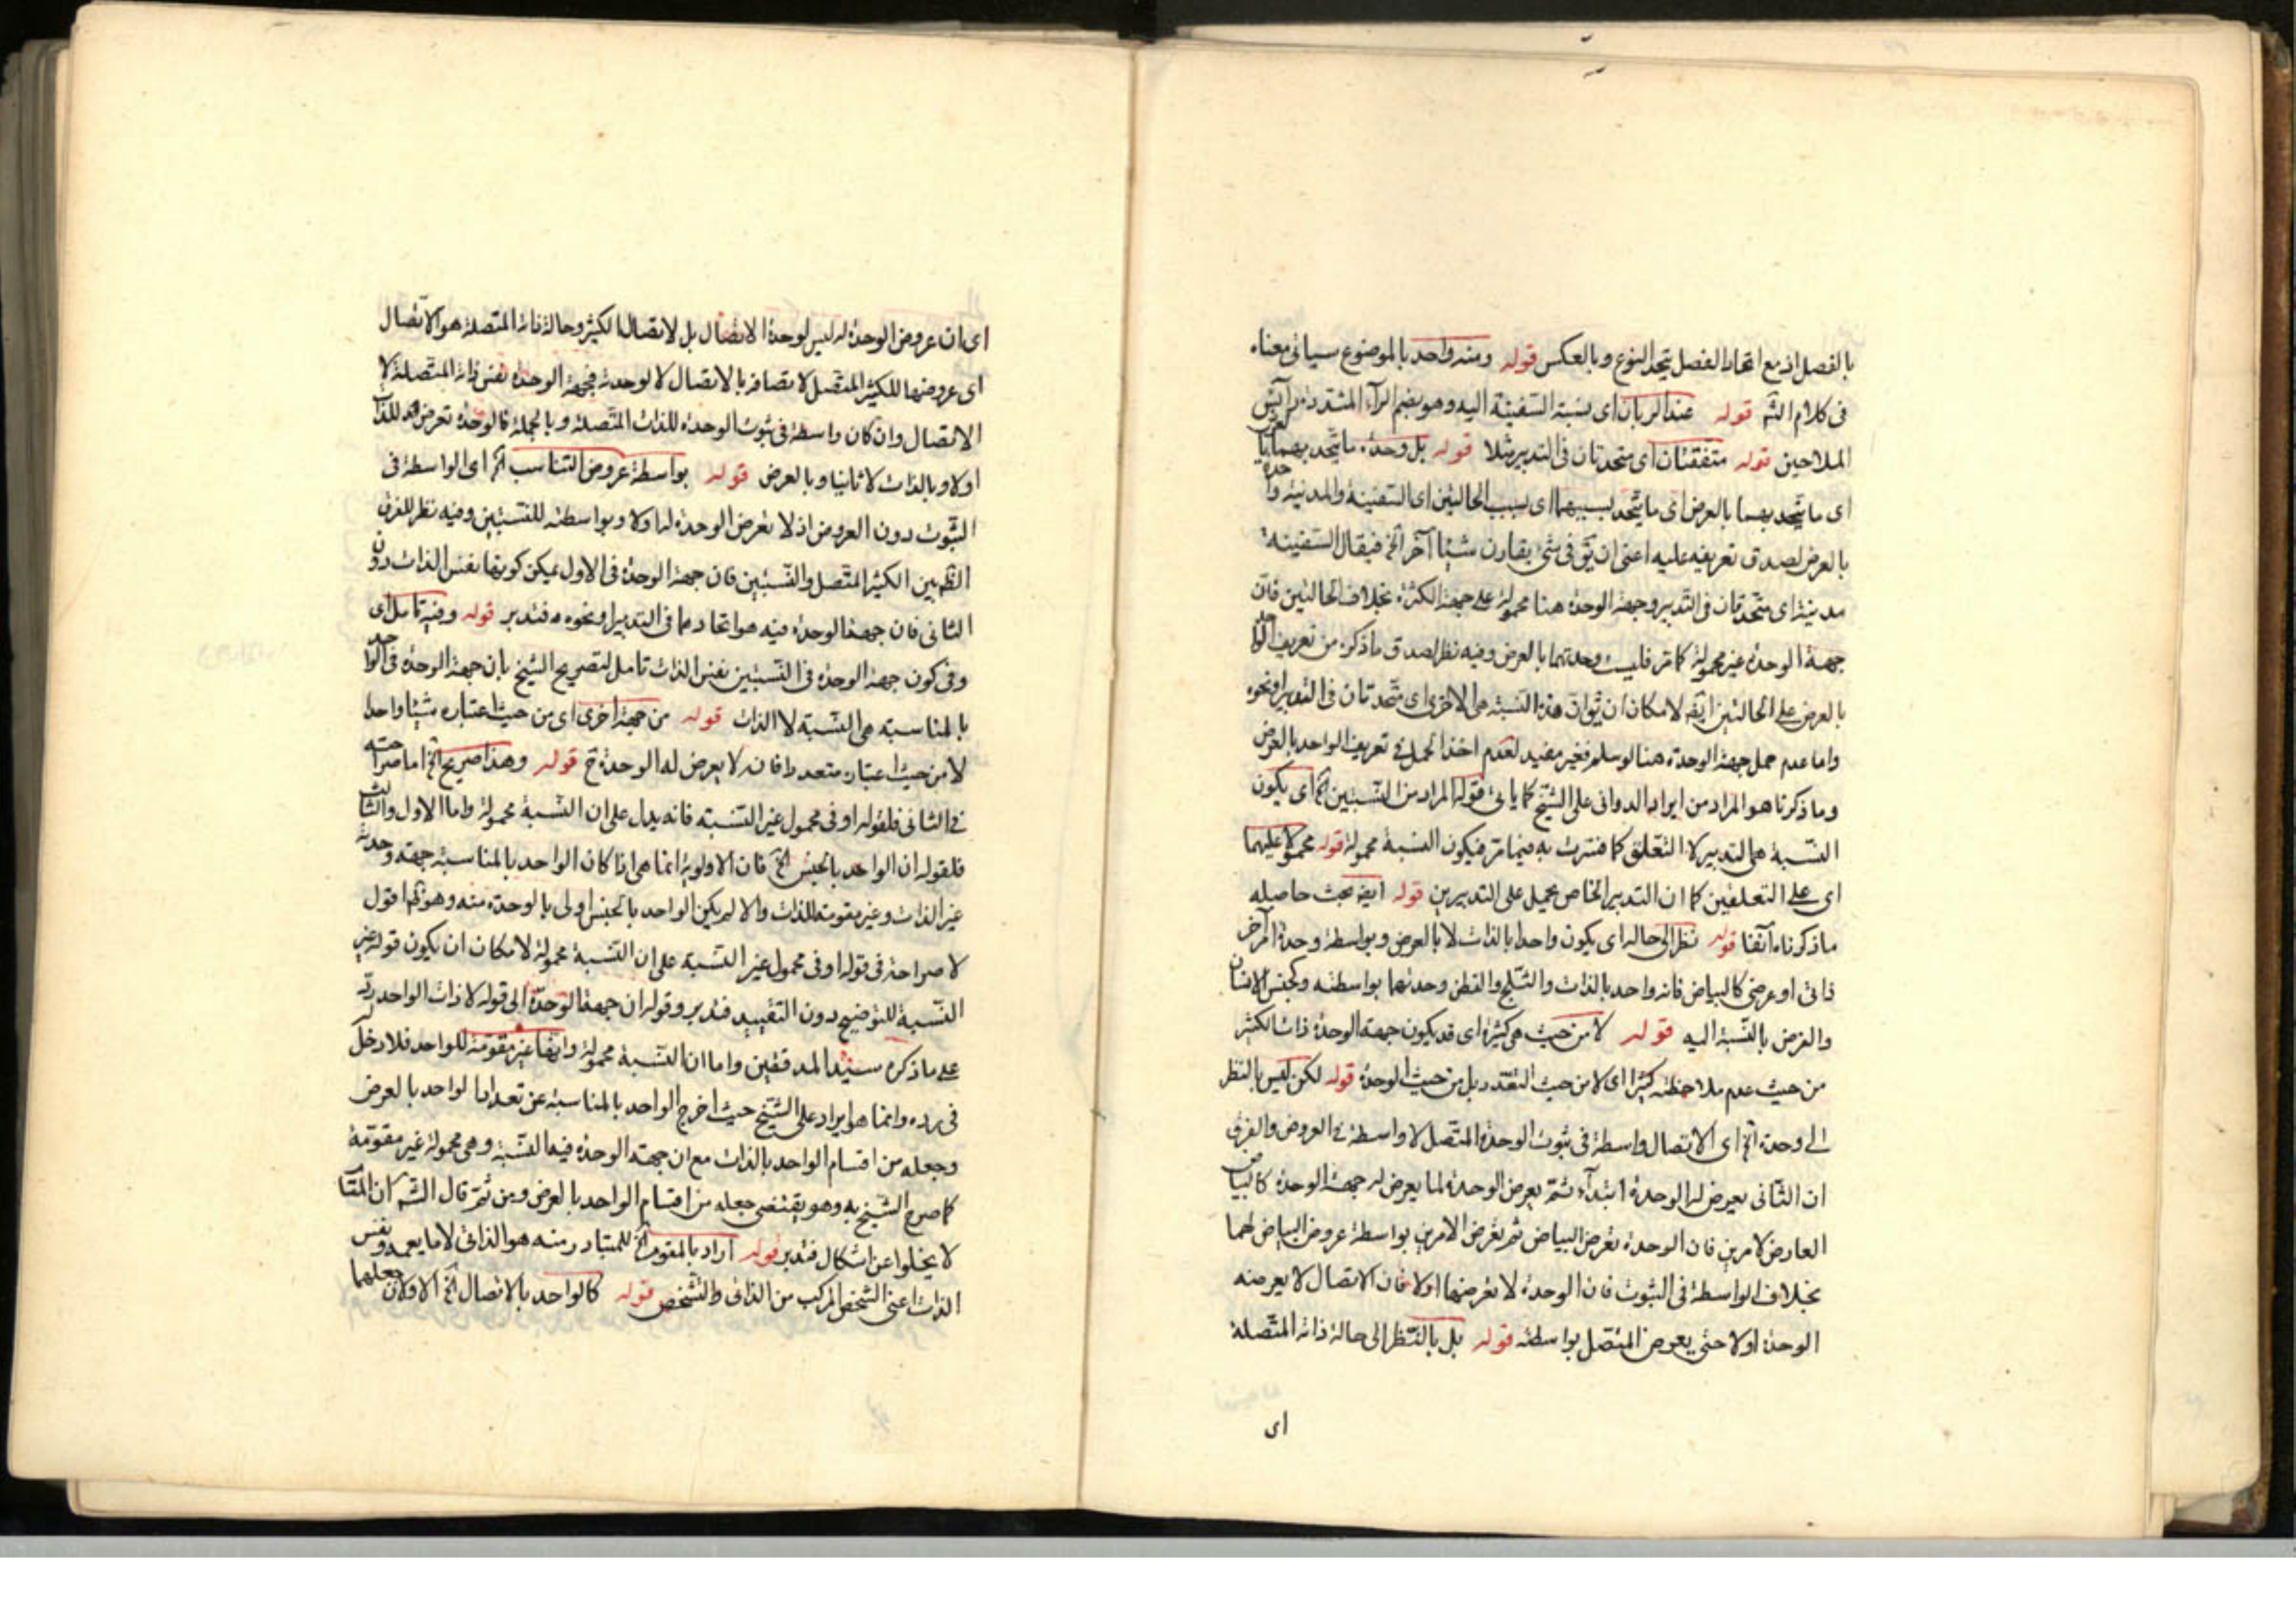 بالفصل اذ مع اتحاد الفصل يتحد النوع وبالعكس قوله ومنه واحد بالموضوع سياتى معناه
فى كلام الشم قوله عند الربان اى بنسبة السفينة اليه وهو بضم الراء المشددة رئيس
الملاحين قوله متفقتان اى متحدتان فى التدبير مثلا قوله بل وحدة ما يتحد بهما بالعرض
اى ما يتحد بهما بالعرض اى ما يتحد بسببهما اى بسبب الحالتين اى السفينة والمدنية واحدة
بالعرض لصدق تعريفه عليه اعنى ان يق فى شئ يقارن شيئا آخر الخ فيقال السفينة
مدينة اى متحدتان فى التدبير وجهة الوحدة هنا محمولة على جهة الكثرة بخلاف الحالتين فان
جهة الوحدة غير محمولة كما مر فليست وحدتهما بالعرض وفيه نظر لصدق ما ذكره من تعريف الواحد
بالعرض على الحالتين ايضا لامكان ان يق ان هذه النسبة هى الاخرى اى متحدتان فى التدبير او نحوه
واما عدم حمل جهة الوحدة هنا لو سلم فغير مفيد لعدم اخذ الحمل فى تعريف الواحد بالعرض
وما ذكرنا هو المراد من ايراد الدوانى على الشيخ كما ياتى قوله المراد من النسبتين الخ اى يكون
النسبة هى التدبير لا التعلق كما فسرت به فيما مر فيكون النسبة محمولة قوله محمولا عليهما
اى على التعلقين كما ان التدبير الخاص يحمل على التدبيرين قوله ايضا بحث حاصله
ما ذكرناه آنفا قوله نظرا الى حاله اى يكون واحدا بالذات لا بالعرض وبواسطة وحدة امر آخر
ذاتى او عرضى كالبياض فانه واحد بالذات والثلج والقطن وحدتهما بواسطته وكجنس الانسان
والفرس بالنسبة اليه قوله لا من حيث هى كثيرة اى قد يكون جهة الوحدة ذات الكثير
من حيث عدم ملاحظته كثيرا اى لا من حيث التعدد بل من حيث الوحدة قوله لكن ليس بالنظر
الى وحدة الخ اى الاتصال واسطة فى ثبوت الوحدة المتصل لا واسطة فى العروض والفرق
ان الثانى يعرض له الوحدة ابتداء ثم يعرض الوحدة لما يعرض له جهة الوحدة كالبياض
العارض لامرين فان الوحدة تعرض البياض ثم تعرض الامرين بواسطة عروض البياض لهما
بخلاف الواسطة فى الثبوت فان الوحدة لا تعرضها اولا فان الاتصال لا يعرضه
الوحدة اولا حتى يعرض المتصل بواسطته قوله بل بالنظر الى حالة ذاته المتصلة
اى
اى ان عروض الوحدة له ليس لوحدة الاتصال بل لاتصال الكثير وحالة ذاته المتصلة هو الاتصال
اى عروضها للكثير المتصل لاتصافه بالاتصال لا لوحدته فجهة الوحدة نفس ذاته المتصلة لا
الاتصال وان كان واسطة فى ثبوت الوحدة للذات المتصلة وبالجملة فالوحدة تعرض للذات
اولا وبالذات لا ثانيا وبالعرض قوله بواسطة عروض التناسب الخ اى الواسطة فى
الثبوت دون العروض اذ لا تعرض الوحدة لها اولا وبواسطته للنسبتين وفيه نظر للفرق
الظم بين الكثير المتصل والنسبتين فان جهة الوحدة فى الاول يمكن كونها نفس الذات دون
الثانى فان جهة الوحدة فيه هو اتحادهما فى التدبير او نحوه فتدبر قوله وفيه تامل اى
وفى كون جهة الوحدة فى النسبتين نفس الذات تامل لتصريح الشيخ بان جهة الوحدة فى الواحد
بالمناسبة هى النسبة لا الذات قوله من جهة اخرى اى من حيث اعتباره شيئا واحدا
لا من حيث اعتباره متعددا فانه لا يعرض له الوحدة ح قوله وهذا صريح الخ اما صراحته
فى الثانى فلقوله او فى محمول غير النسبة فانه يدل على ان النسبة محمولة واما الاول والثالث
فلقوله ان الواحد بالجنس الخ فان الاولوية انما هى اذا كان الواحد بالمناسبة جهة وحدته
غير الذات وغير مقومة للذات والا لم يكن الواحد بالجنس اولى بالوحدة منه وهو ظم اقول
لا صراحة فى قوله او فى محمول غير النسبة على ان النسبة محمولة لامكان ان يكون قوله غير
النسبة للتوضيح دون التقييد فتدبر وقوله ان جهة الوحدة الى قوله لا ذات الواحد رد
على ما ذكره سيد المدققين واما ان النسبة محمولة وانها غير مقومة للواحد فلا دخل
فى رده وانما هو ايراد على الشيخ حيث اخرج الواحد بالمناسبة عن تعداد الواحد بالعرض
وجعله من اقسام الواحد بالذات مع ان جهة الوحدة فيه النسبة وهى محمولة غير مقومة
كما صرح الشيخ به وهو يقتضى جعله من اقسام الواحد بالعرض ومن ثم قال الشم ان المقام
لا يخلوا عن اشكال فتدبر قوله اراد بالمقوم الخ للمتبادر منه هو الذاتى لا ما يعمه ونفس
الذات اعنى الشخص المركب من الذاتى والتشخص قوله كالواحد بالاتصال الخ الاولان جعلهما